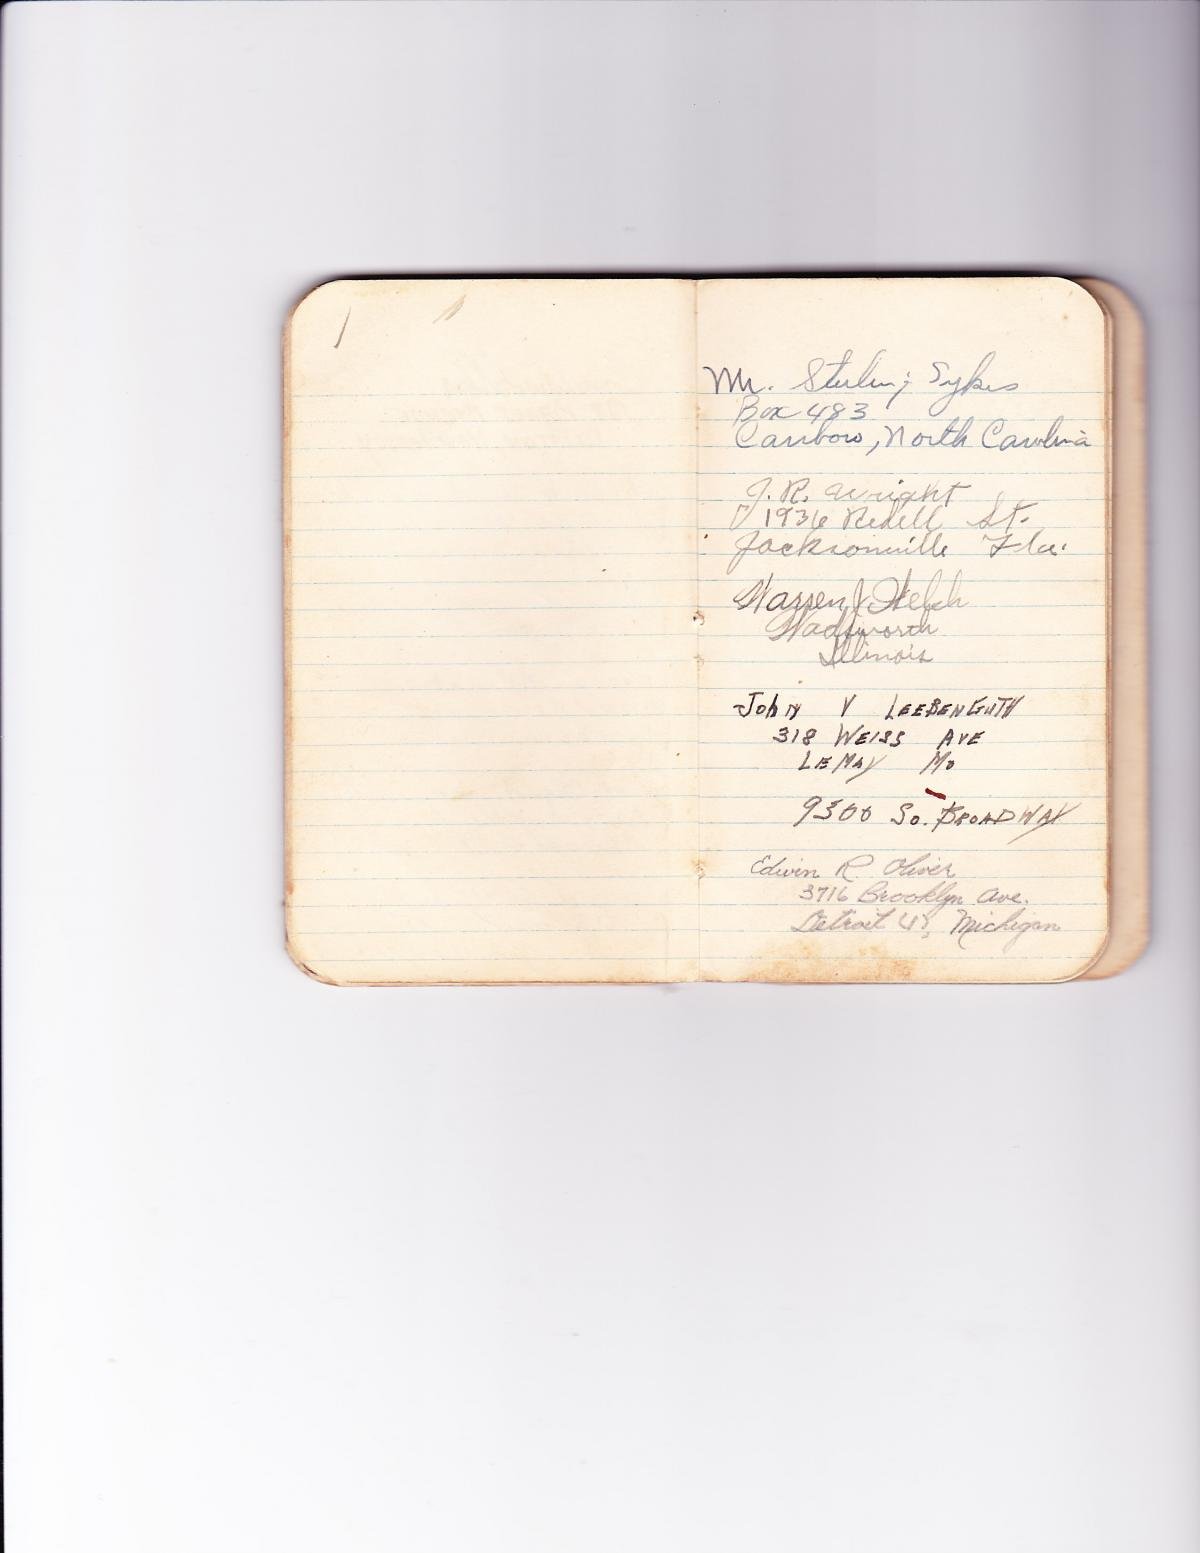 Mr. Sterling Sykes
Box 483
Carrboro, North Carolina
J. R. Wright
1936 St.
Jacksonville Fla.
Warren J. Welch
Wadsworth
Illinois
JOHN V LEEBENGUTH
318 WEISS AVE
LEMAY MO
9300 SO. BROADWAY
Edwin R. Oliver
3716 Brooklyn Ave.
Detroit Michigan